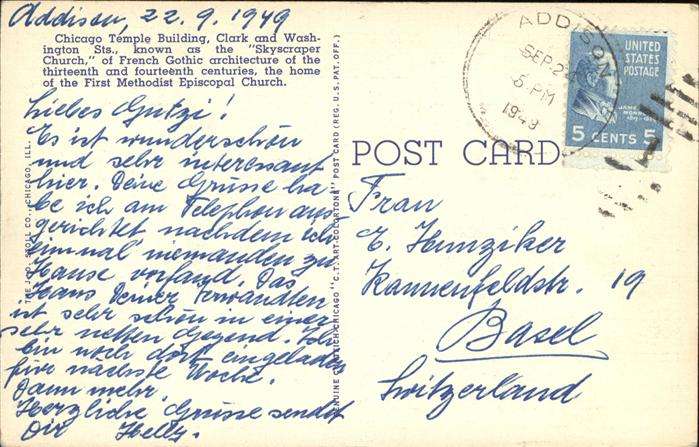 Addison, 22.9.1949
Chicago Temple Building, Clark and Wash-
ington Sts., known as the "Skyscraper
Church," of French Gothic architecture of the
thirteenth and fourteenth centuries, the home
of the First Methodist Episcopal Church.
Liebes Gutzi!
Es ist wunderschön
und sehr interessant
hier. Deine Grüsse ha
be ich am Telephon aus
gerichtet nachdem ich
einmal niemanden zu
Hause vorfand. Das
Haus Deiner Verwandten
ist sehr schön in einer
sehr netten Gegend. Ich
bin noch dort eingeladen
für nächste Woche.
Dann mehr.
Herzliche Grüsse sendet
Dir Helly.
THE J. O. STOLL CO., CHICAGO, ILL.
CHICAGO "C.T. ART-COLORTONE" POST CARD (REG. U.S. PAT. OFF.)
POST CARD
ADDISON
SEP 22
5 PM
1949
UNITED
STATES
POSTAGE
JAMES
MONROE
5 CENTS 5
Frau
E. Hunziker
Kannenfeldstr. 19
Basel
Switzerland